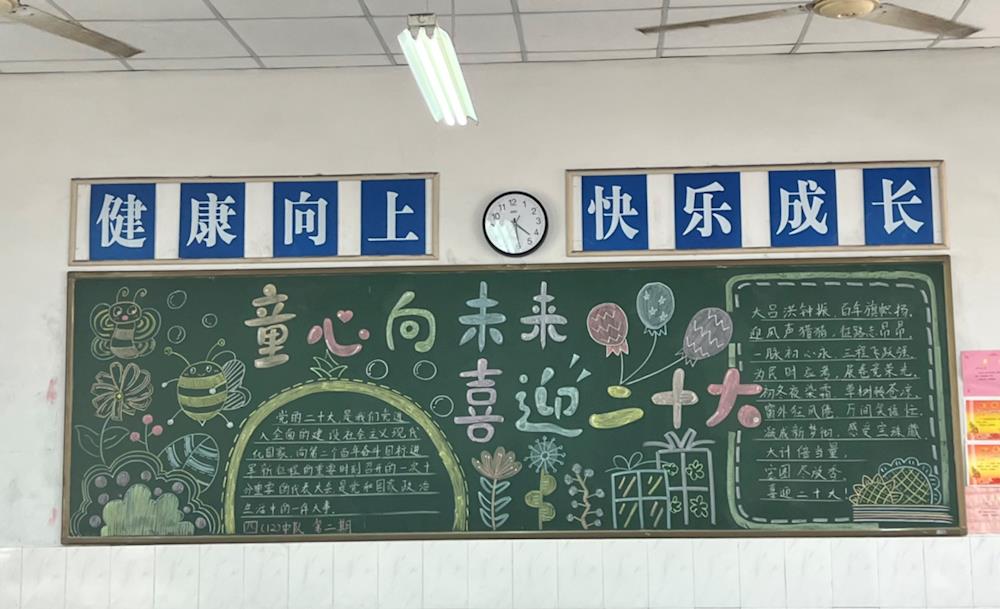 健康向上
快乐成长
童心向未来
喜迎二十大
党的二十大是我们党进
入全面的建设社会主义现代
化国家、向第二个百年奋斗目标进
军新征程的重要时刻召开的一次十
分重要的代表大会是党和国家政治
生活中的一件大事.
四(12)中队 第二期
大吕洪钟振,百年旗帜扬,
迎风声猎猎,征路志昂昂
一脉初心永,
为民时
冬夜染霜 草树
窗外红风
感受宝珠藏
大计倍当量,
宏图尽放香
喜迎二十大